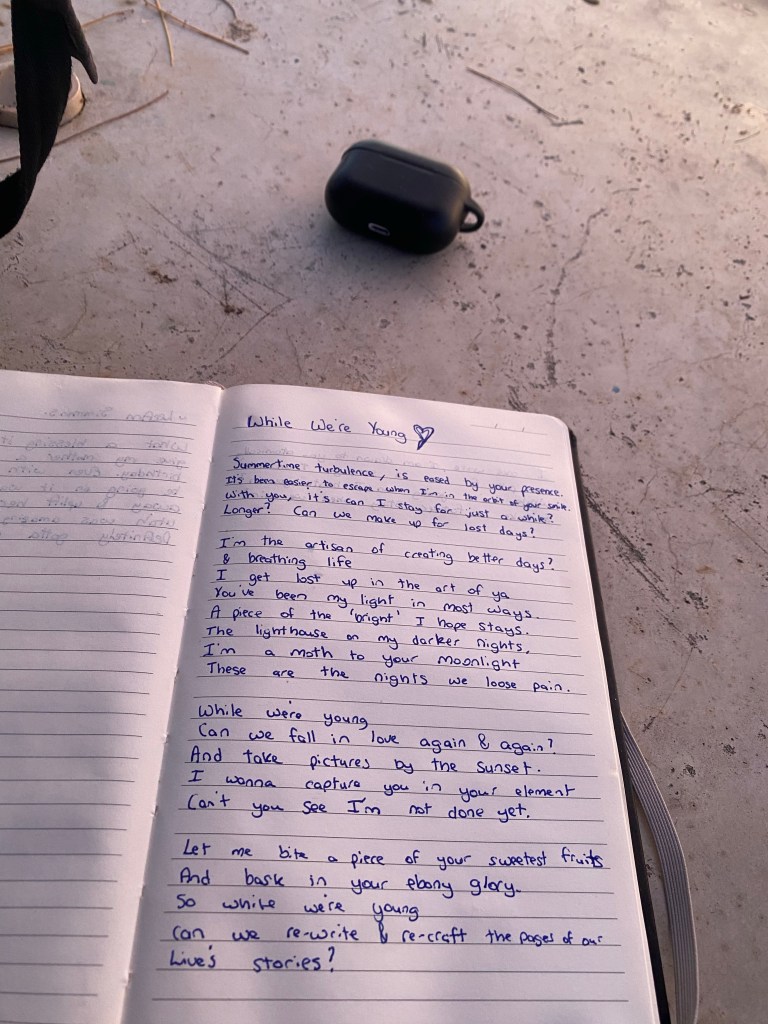 While We're Young
Summertime turbulence, is eased by your presence.
It's been easier to escape when I'm in the orbit of your smile.
With you, it's can I stay for just a while?
Longer? Can we make up for lost days?
I'm the artisan of creating better days?
& breathing life
I get lost up in the art of ya
You've been my light in most ways.
A piece of the 'bright' I hope stays.
The lighthouse on my darker nights,
I'm a moth to your moonlight
These are the nights we loose pain.
While we're young
Can we fall in love again & again?
And take pictures by the sunset.
I wanna capture you in your element
Can't you see I'm not done yet.
Let me bite a piece of your sweetest fruits
And bask in your ebony glory.
So while we're young
Can we re-write & re-craft the pages of our
Live's stories?